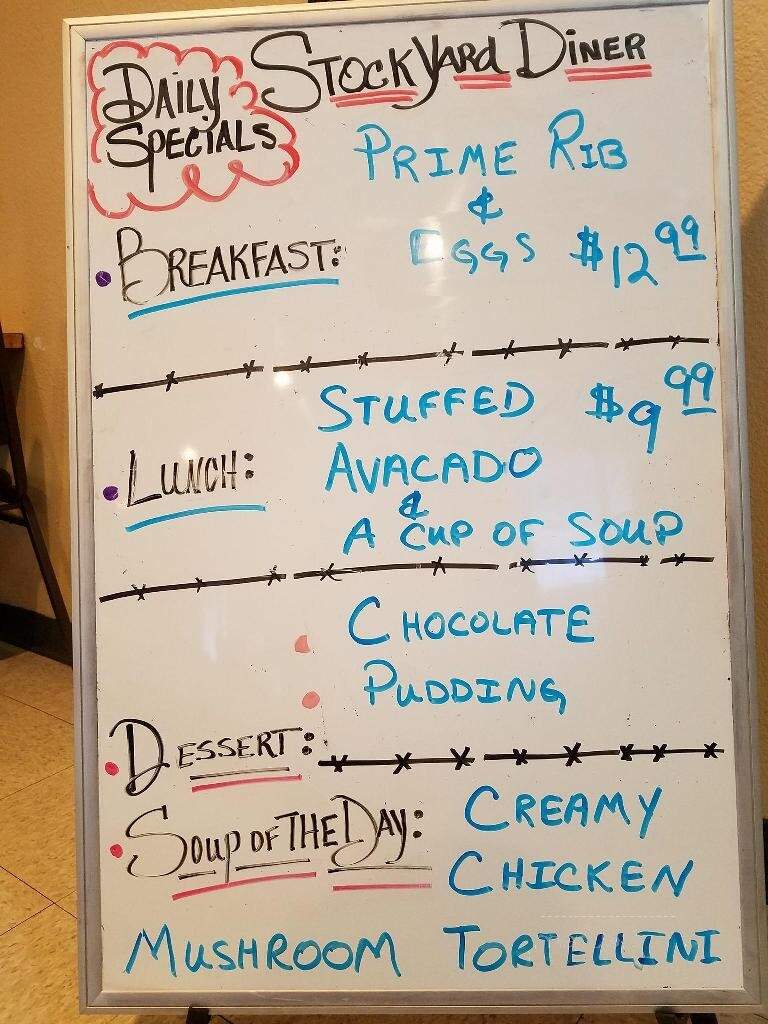 Daily Specials
Stockyard Diner
Prime Rib
&
Eggs $12.99
Breakfast:
Stuffed $9.99
Lunch:
Avacado
&
A Cup of Soup
Chocolate
Pudding
Dessert:
Soup of the Day: Creamy
Chicken
Mushroom Tortellini